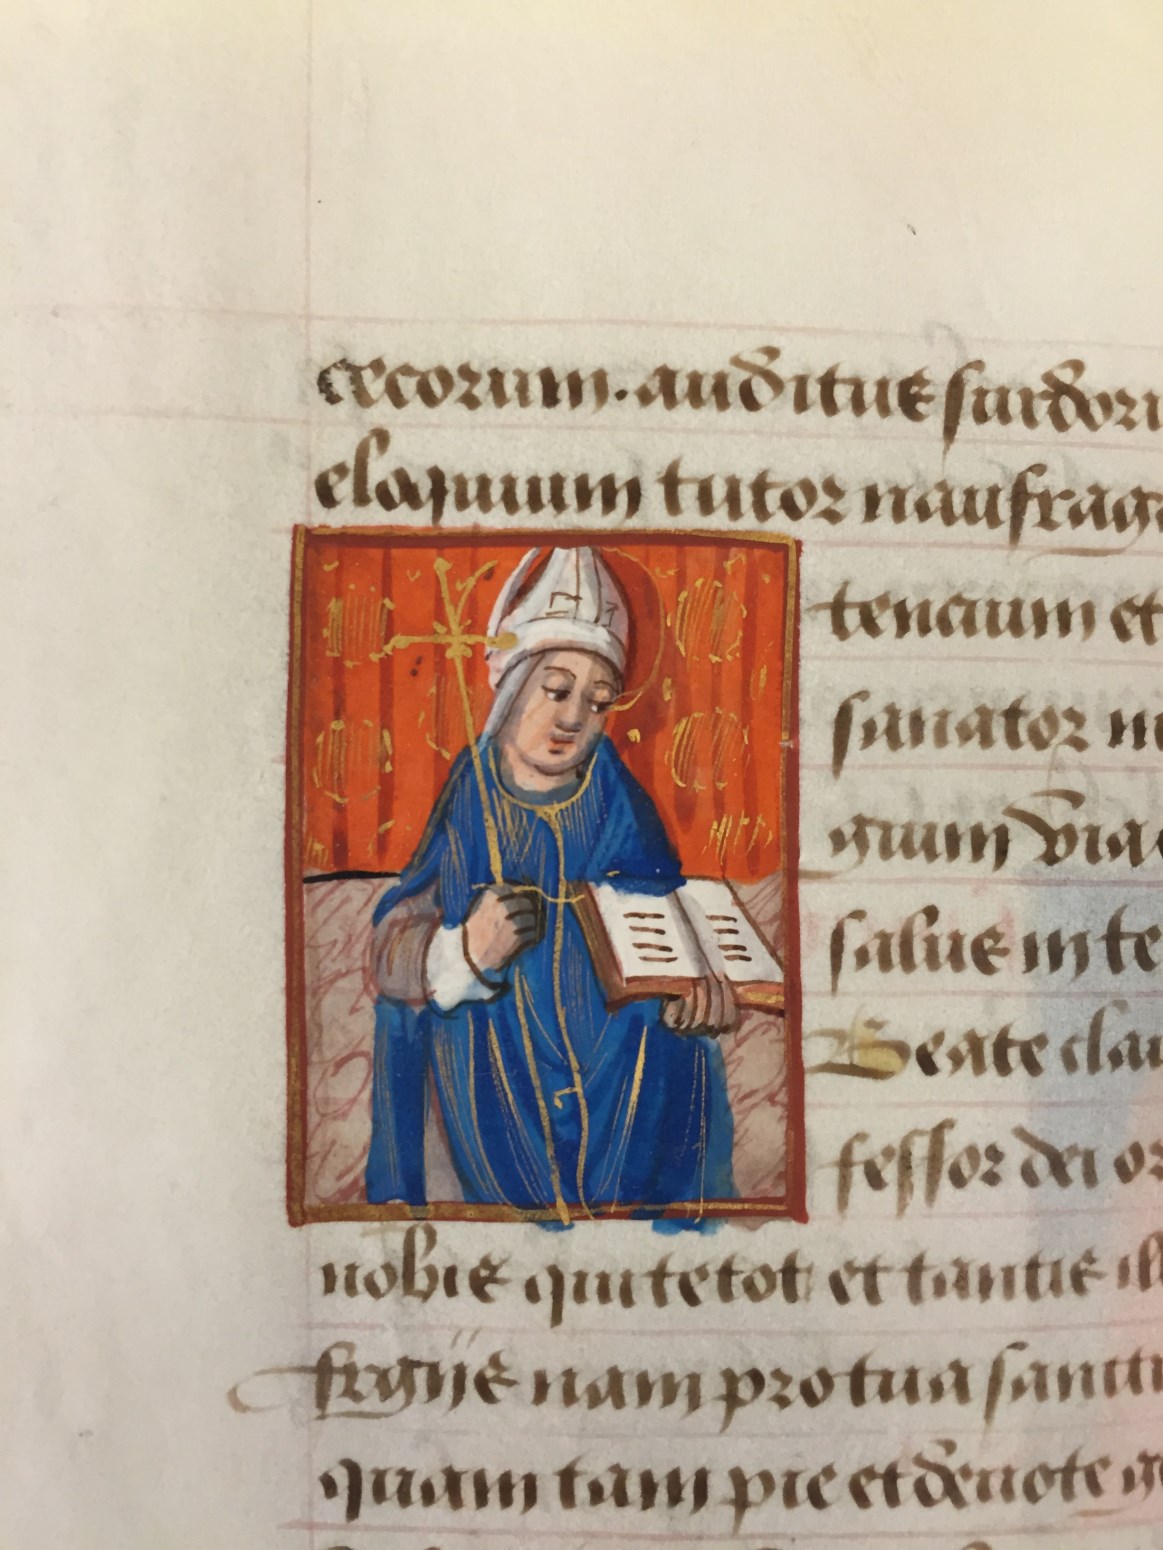 cecorum. auditus surdoru
eloquium tutor naufrag
tencium et
sanator
gium via
salus in te
Beate clau
fessor dei or
nobis qui te tot et tantis
nam pro tua sancti
quam tam pie et deuote